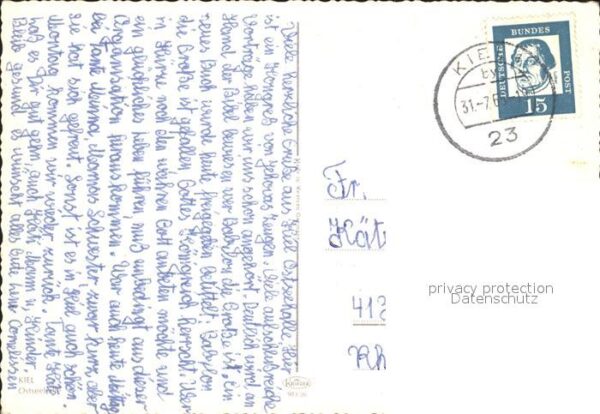 Viele herzliche Grüße aus Kiel Ostseehalle. Hier
ist ein Kongress von Jehovas Zeugen. Viele aufschlußreiche
Vorträge haben wir uns schon angehört. Deutlich wird an
Hand der Bibel bewiesen wer Babylon die Große ist. ein
neues Buch wurde heute freigegeben betitelt: Babylon
die Große ist gefallen Gottes Königreich herrscht. Wer
in Kürze noch den wahren Gott anbeten möchte und
ein glückliches Leben führen muß unbedingt aus dieser
Organisation herauskommen. War auch heute Mittag
bei Tante Minna, Mamas Schwester zwar kurz, aber
sie hat sich gefreut. Sonst ist es in Kiel auch schön.
Montag kommen wir wieder zurück. Tante
hab es Dir gut gehn auch Mann u. Kinder.
Bleibt gesund es wünscht alles Gute
KIEL
KRÜGER
Fr.
Kät
413
Rh
DEUTSCHE
BUNDES
POST
15
KIEL
31.-7.6
23
privacy protection
Datenschutz